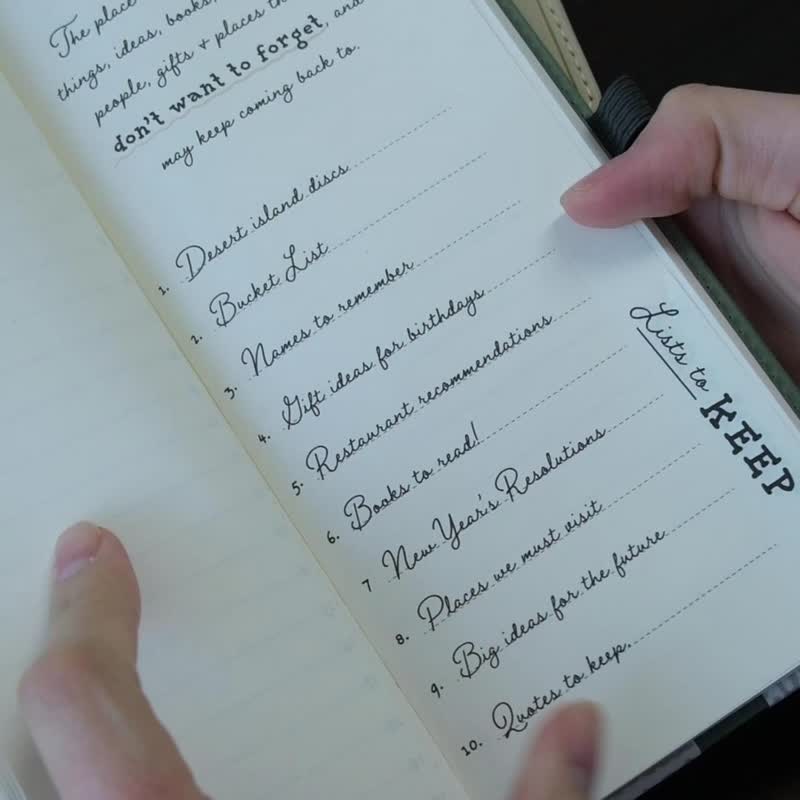 The place
things, ideas, books,
people, gifts + places
don't want to forget, and
may keep coming back to.
1. Desert island discs
2. Bucket List
3. Names to remember
4. Gift ideas for birthdays
5. Restaurant recommendations
6. Books to read!
7 New Year's Resolutions
8. Places we must visit
9. Big ideas for the future
10. Quotes to keep.
Lists to KEEP